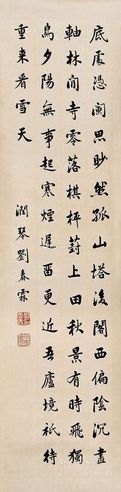 底處憑闌思眇然孤山塔後閣西偏陰沉畫
軸林間寺零落棋枰葑上田秋景有時飛獨
鳥夕陽無事起寒煙遲畱更近吾廬境祇待
重來看雪天
潤琴劉春霖